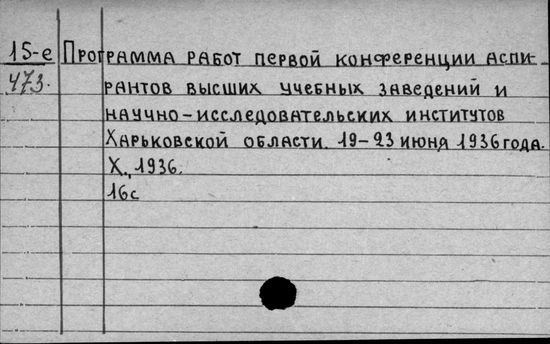 15-е Программа работ первой конференции аспи-
473. рантов высших учебных заведений и
научно-исследовательских институтов
Харьковской области. 19-23 июня 1936 года.
Х., 1936.
16с